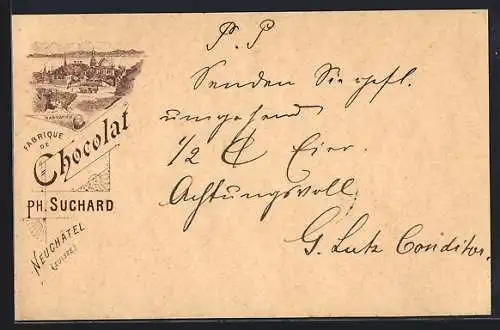 FABRIQUE
DE
Chocolat
PH. SUCHARD
NEUCHÂTEL
(SUISSE)
P. P
Senden Sie gefl.
umgehend
1/2 ₵ Eier.
Achtungsvoll
G. Lutz Conditor.